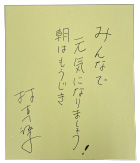 みんなで
元気になりましょう!
朝はもうじき